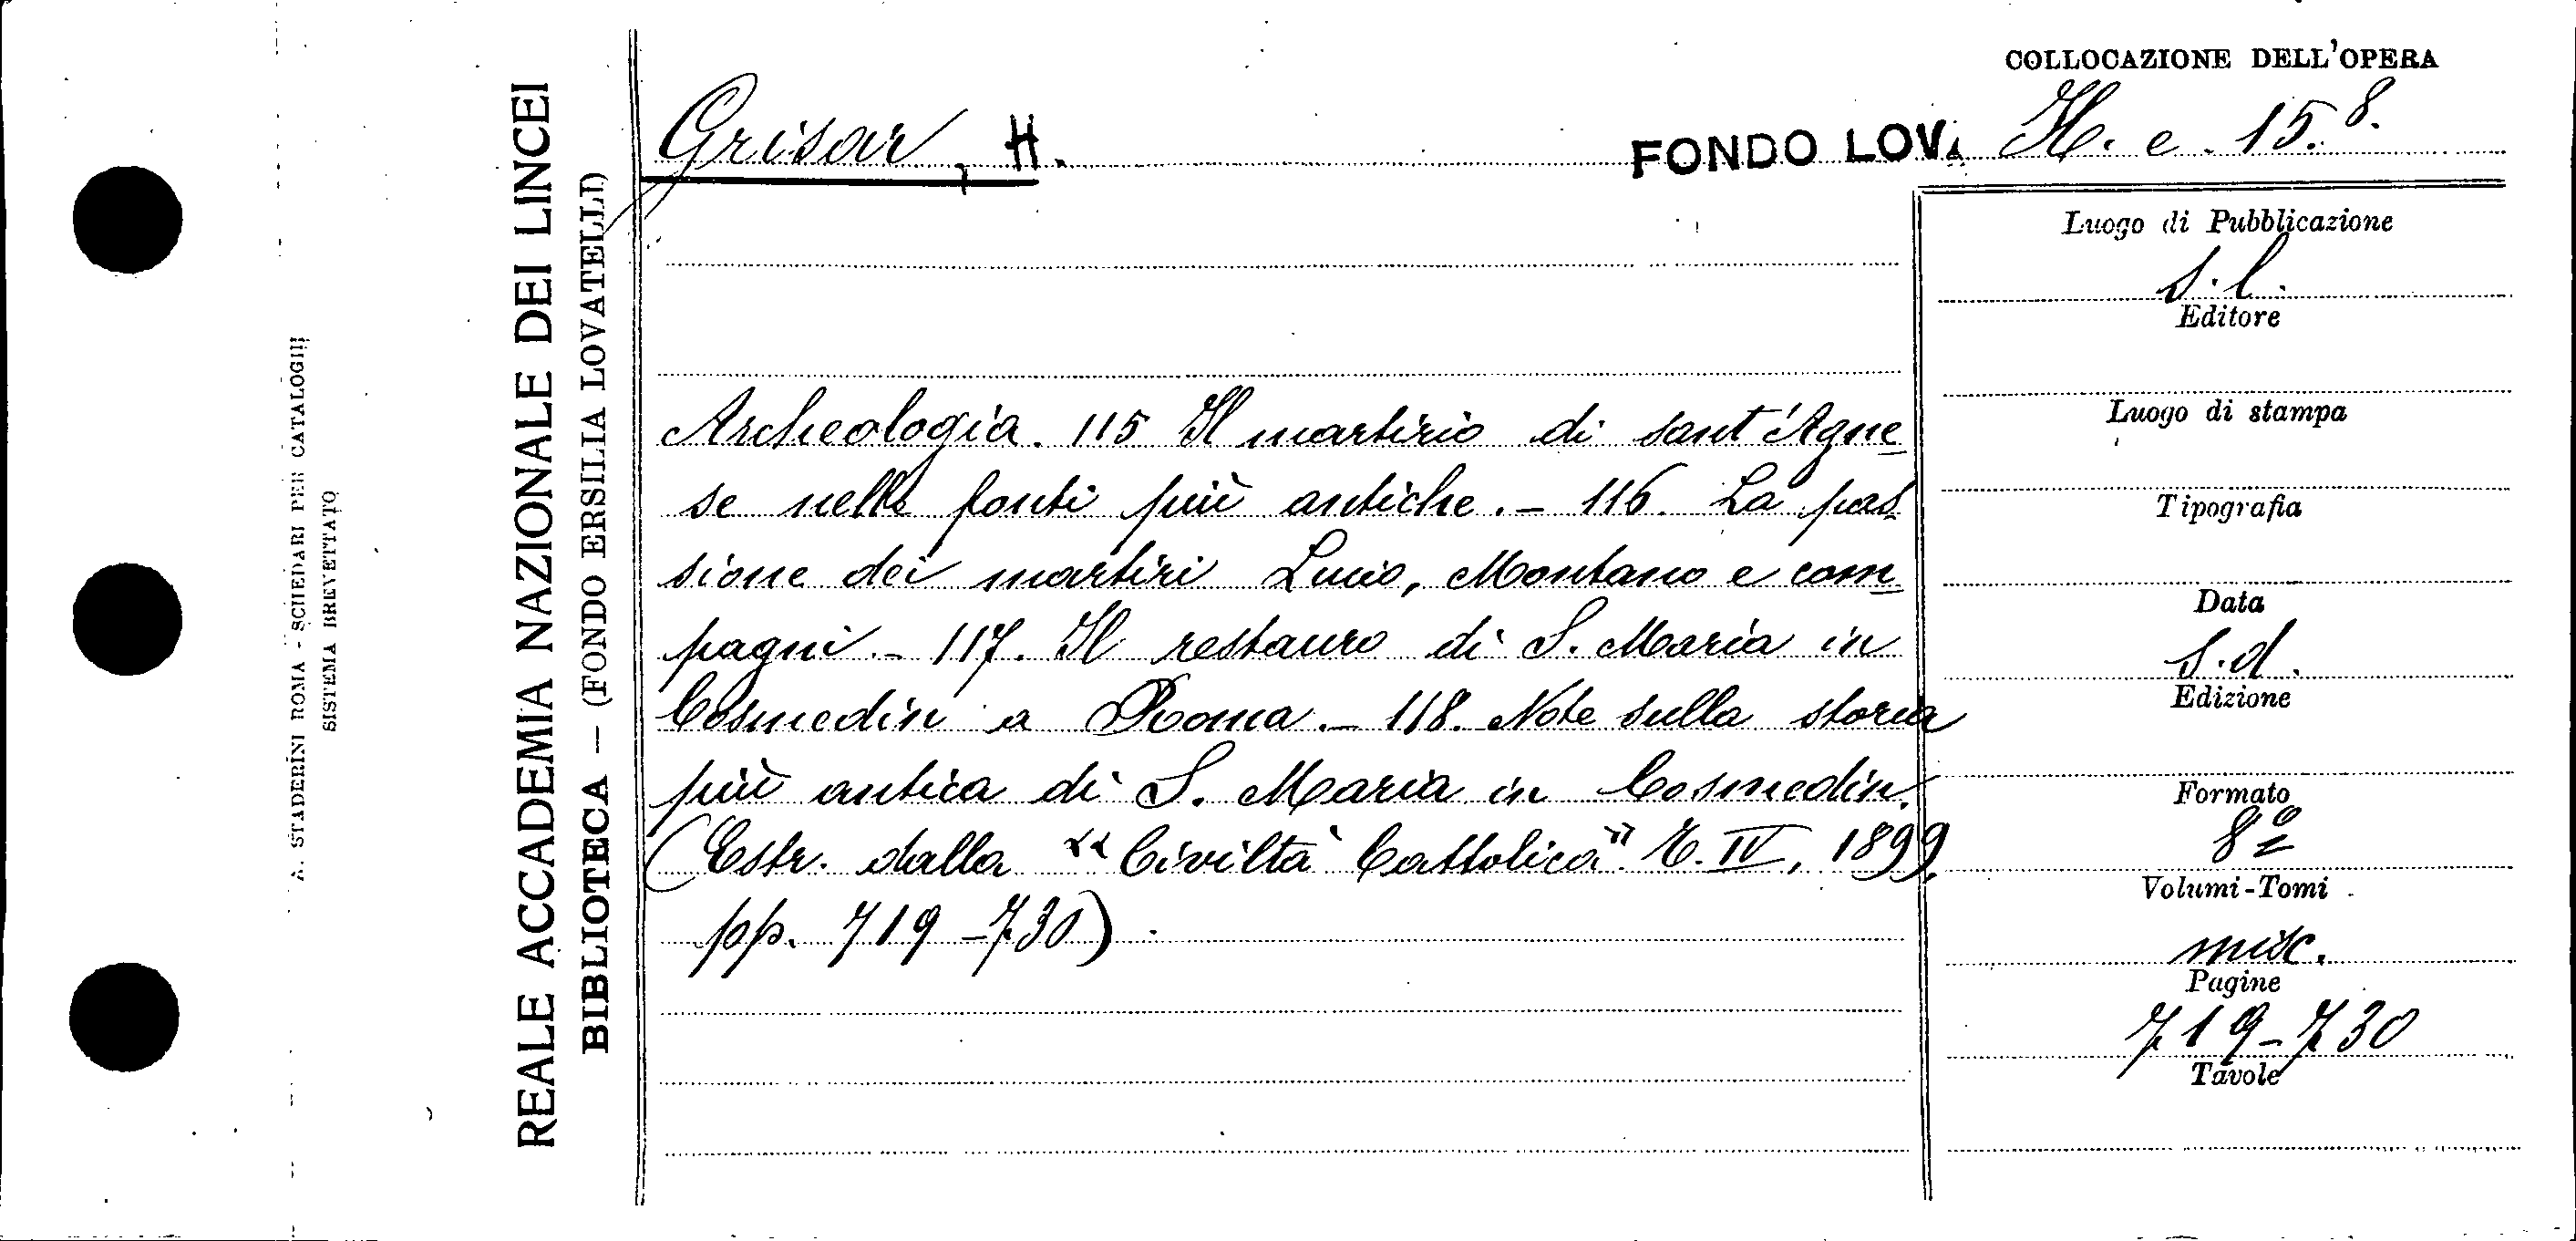 COLLOCAZIONE DELL'OPERA
Grisar, H.
FONDO LOV. H. e. 15.8.
REALE ACCADEMIA NAZIONALE DEI LINCEI
BIBLIOTECA — (FONDO ERSILIA LOVATELLI)
A. STADERINI ROMA - SCHEDARI PER CATALOGHI
SISTEMA BREVETTATO
Archeologia. 115 Il martirio di sant'Agne
se nelle fonti più antiche. - 116. La pas
sione dei martiri Lucio, Montano e com
pagni. - 117. Il restauro di S. Maria in
Cosmedin a Roma. - 118. Note sulla storia
più antica di S. Maria in Cosmedin.
(Estr. dalla "Civiltà Cattolica" T. IV, 1899.
pp. 719-730).
Luogo di Pubblicazione
s.l.
Editore
Luogo di stampa
Tipografia
Data
s.d.
Edizione
Formato
8º
Volumi-Tomi
misc.
Pagine
719-730
Tavole